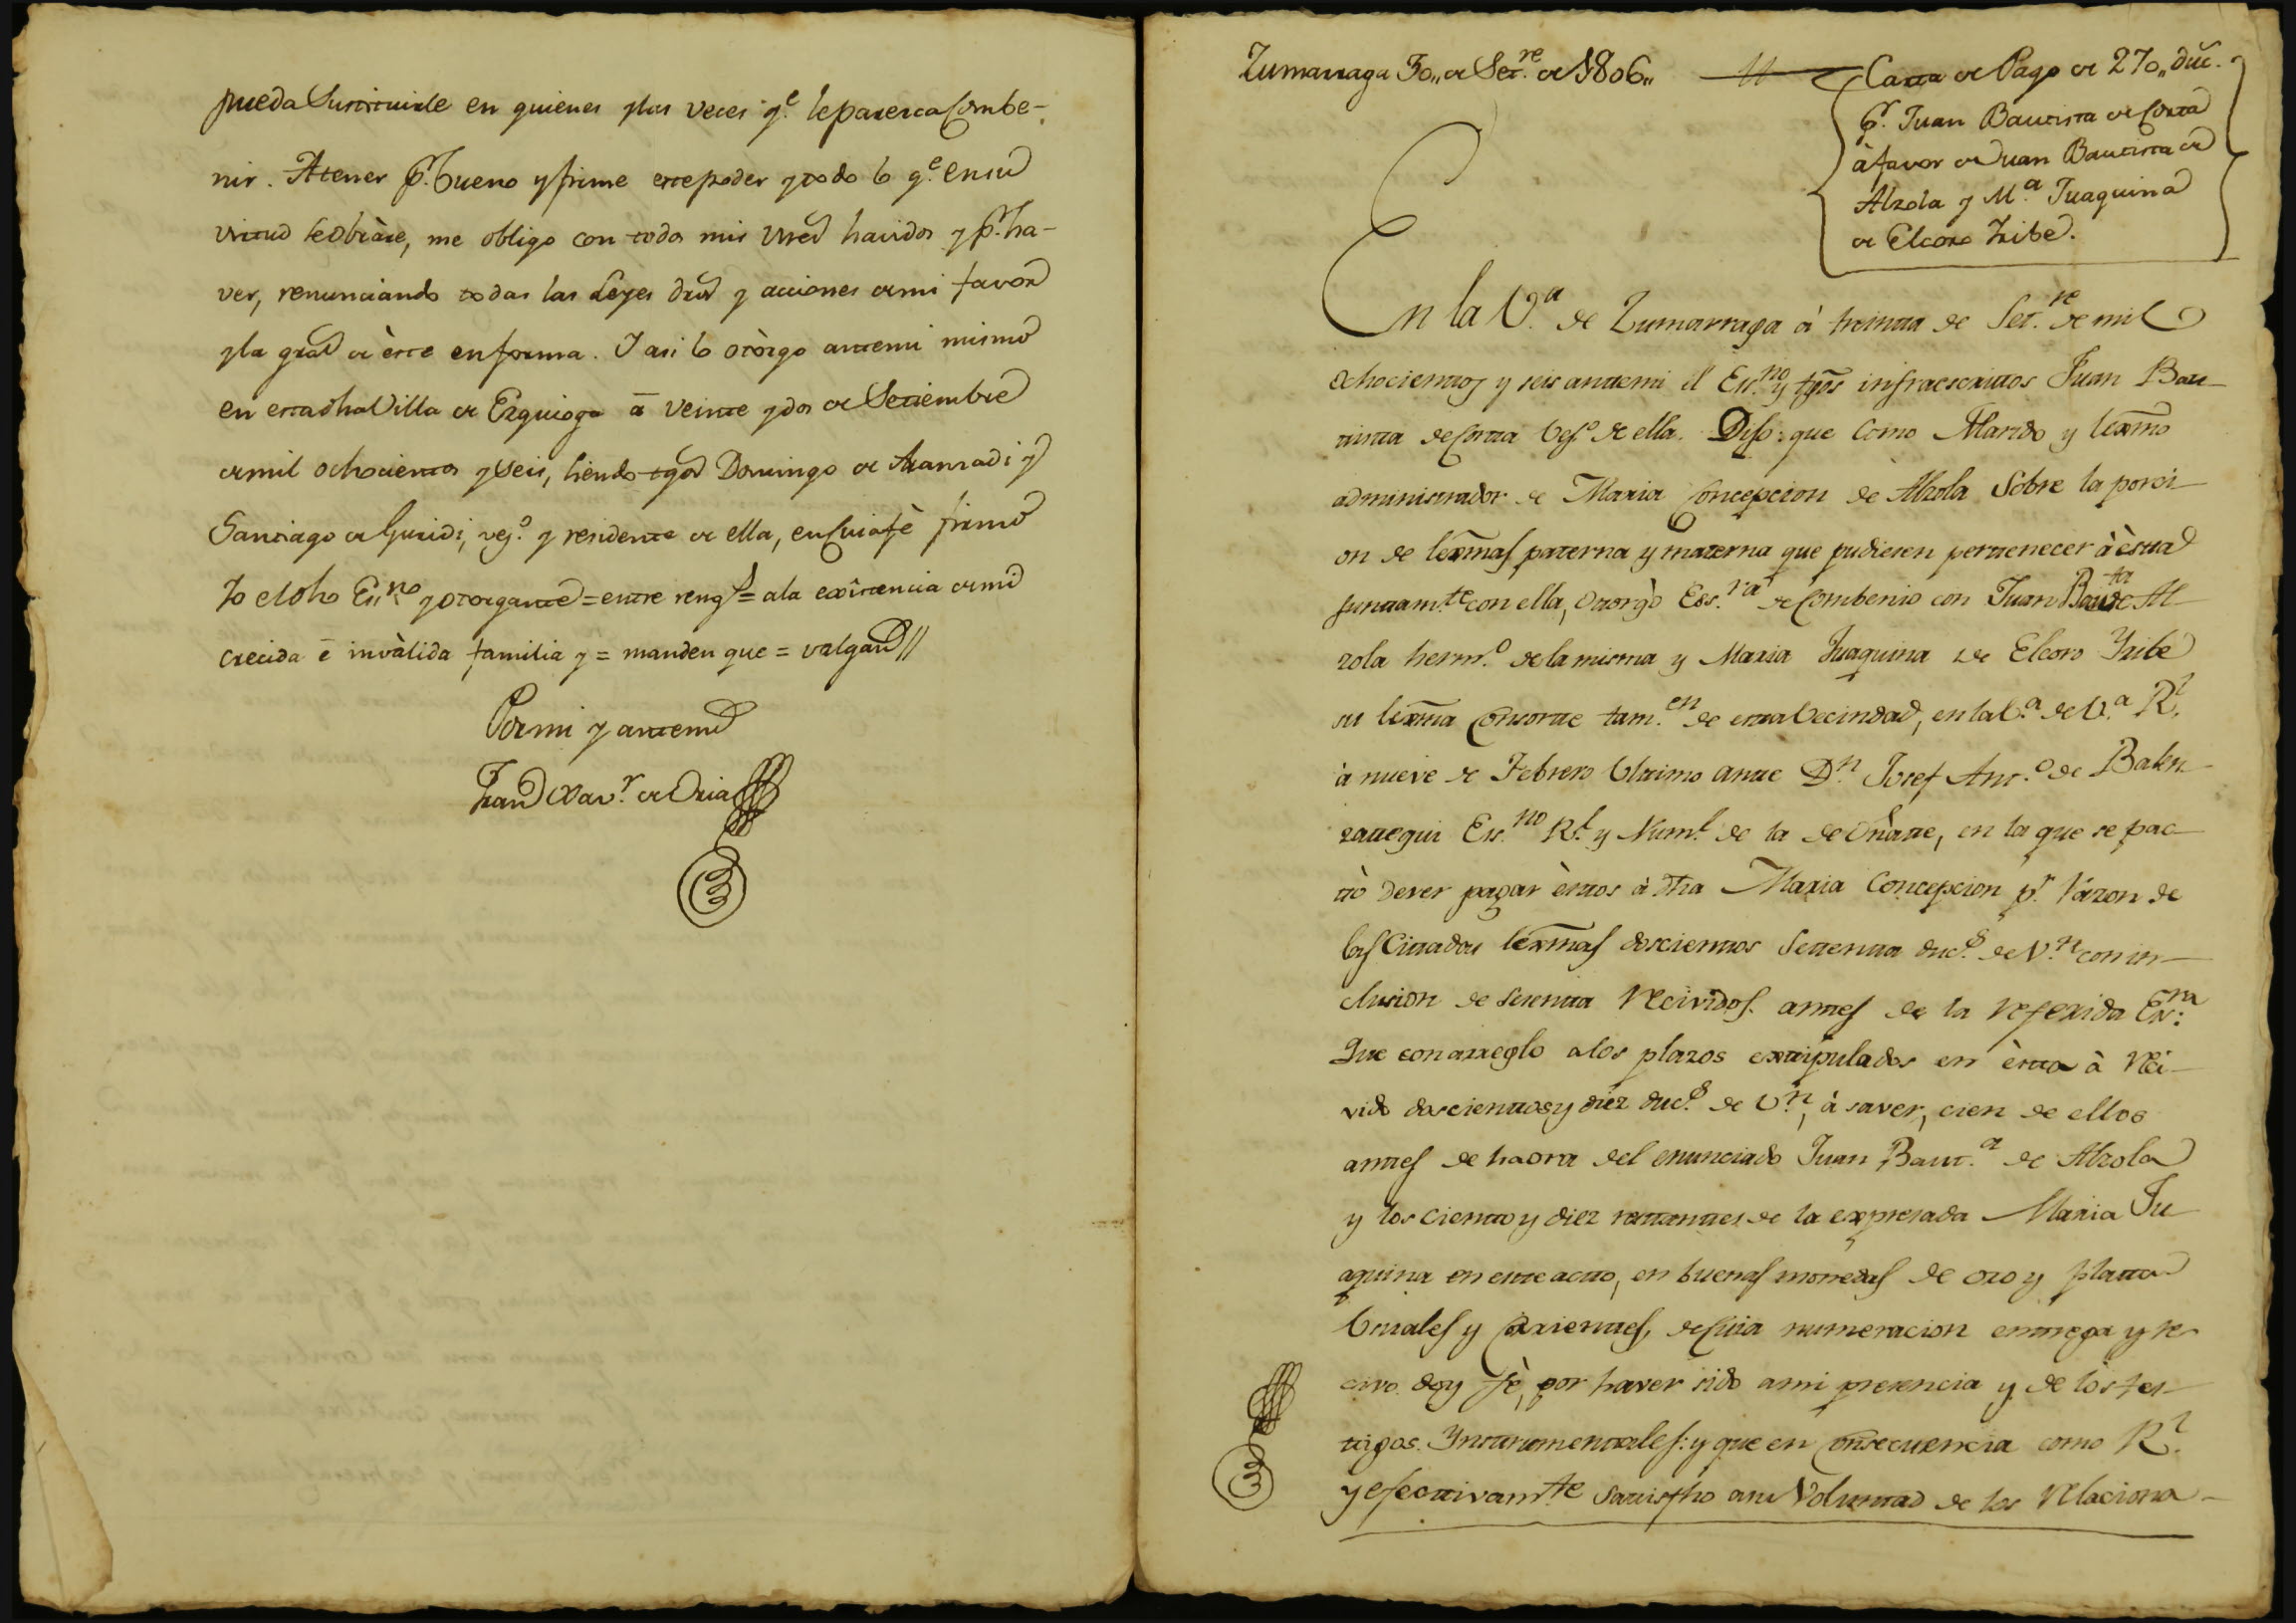 pueda Sustituirle en quienes y las veces q.e le paresca Combe-
nir. Atener p.r bueno y firme este poder y todo lo q.e en su
virtud se obràre, me obligo con todos mis vnes havidos y p.r ha-
ver, renunciando todas las Leyes dros y acciones de mi favor
y la gral de èste en forma. Y asi lo otòrgo antemi mismo
en esta dha Villa de Ezquioga à veinte y dos de Setiembre
de mil ochocientos y seis, siendo tgos Domingo de Aranzadi y
Santiago de Guridi, vej.o y residente de ella, en Cuia fè firmo
Yo el dho Ess.no y otorgante = entre rengs = a la existencia de mi
crecida è invàlida familia y = manden que = valgan//
Por mi y antemi
Fran.co Xav.r de Oria
Zumarraga 30,, de Set.re de 1806,,
Carta de Pago de 270,, duc.
P.r Juan Bautista de Corta
à favor de Juan Bautista de
Alzola y M.a Juaquina
de Elcoro Iribe.
En la V.a de Zumarraga à treinta de Set.re de mil
ochocientos y seis antemi el Ess.no y tgos infraescritos Juan Bau-
tista de Corta Vej.o de ella. Dijo: que como Marido y lexmo
administrador de Maria Concepcion de Alzola Sobre la porci-
on de lexmas paterna y materna que pudiesen pertenecer à èsta
juntam.te con ella, otorgò Ess.ra de Combenio con Juan Bau.ta de Al-
zola herm.o de la misma y Maria Juaquina de Elcoro Yribe
su lexma Consorte tam.en de esta Vecindad, en la V.a de V.a R.l
à nueve de Febrero Ultimo ante D.n Josef Ant.o de Balen-
zategui Ess.no R.l y Num.l de la de Oñate, en la que se pac-
tò dever pagar èstos à dha Maria Concepcion p.r razon de
las Citadas lexmas doscientos Setenta duc.s de V.n con in-
clusion de sesenta recividos antes de la referida Ess.ra
Que con arreglo a los plazos extipulados en èsta à reci-
vido doscientos y diez duc.s de V.n, à saver, cien de ellos
antes de haora del enunciado Juan Baut.a de Alzola
y los ciento y diez restantes de la expresada Maria Ju-
aquina en este acto, en buenas monedas de oro y plata
Usuales y Corrientes, de Cuia numeracion entrega y re-
civo doy fè, por haver sido a mi presencia y de los tes-
tigos Ynstrumentales: y que en Consecuencia como R.l
y efectivam.te satisfho a su Voluntad de los relaciona-